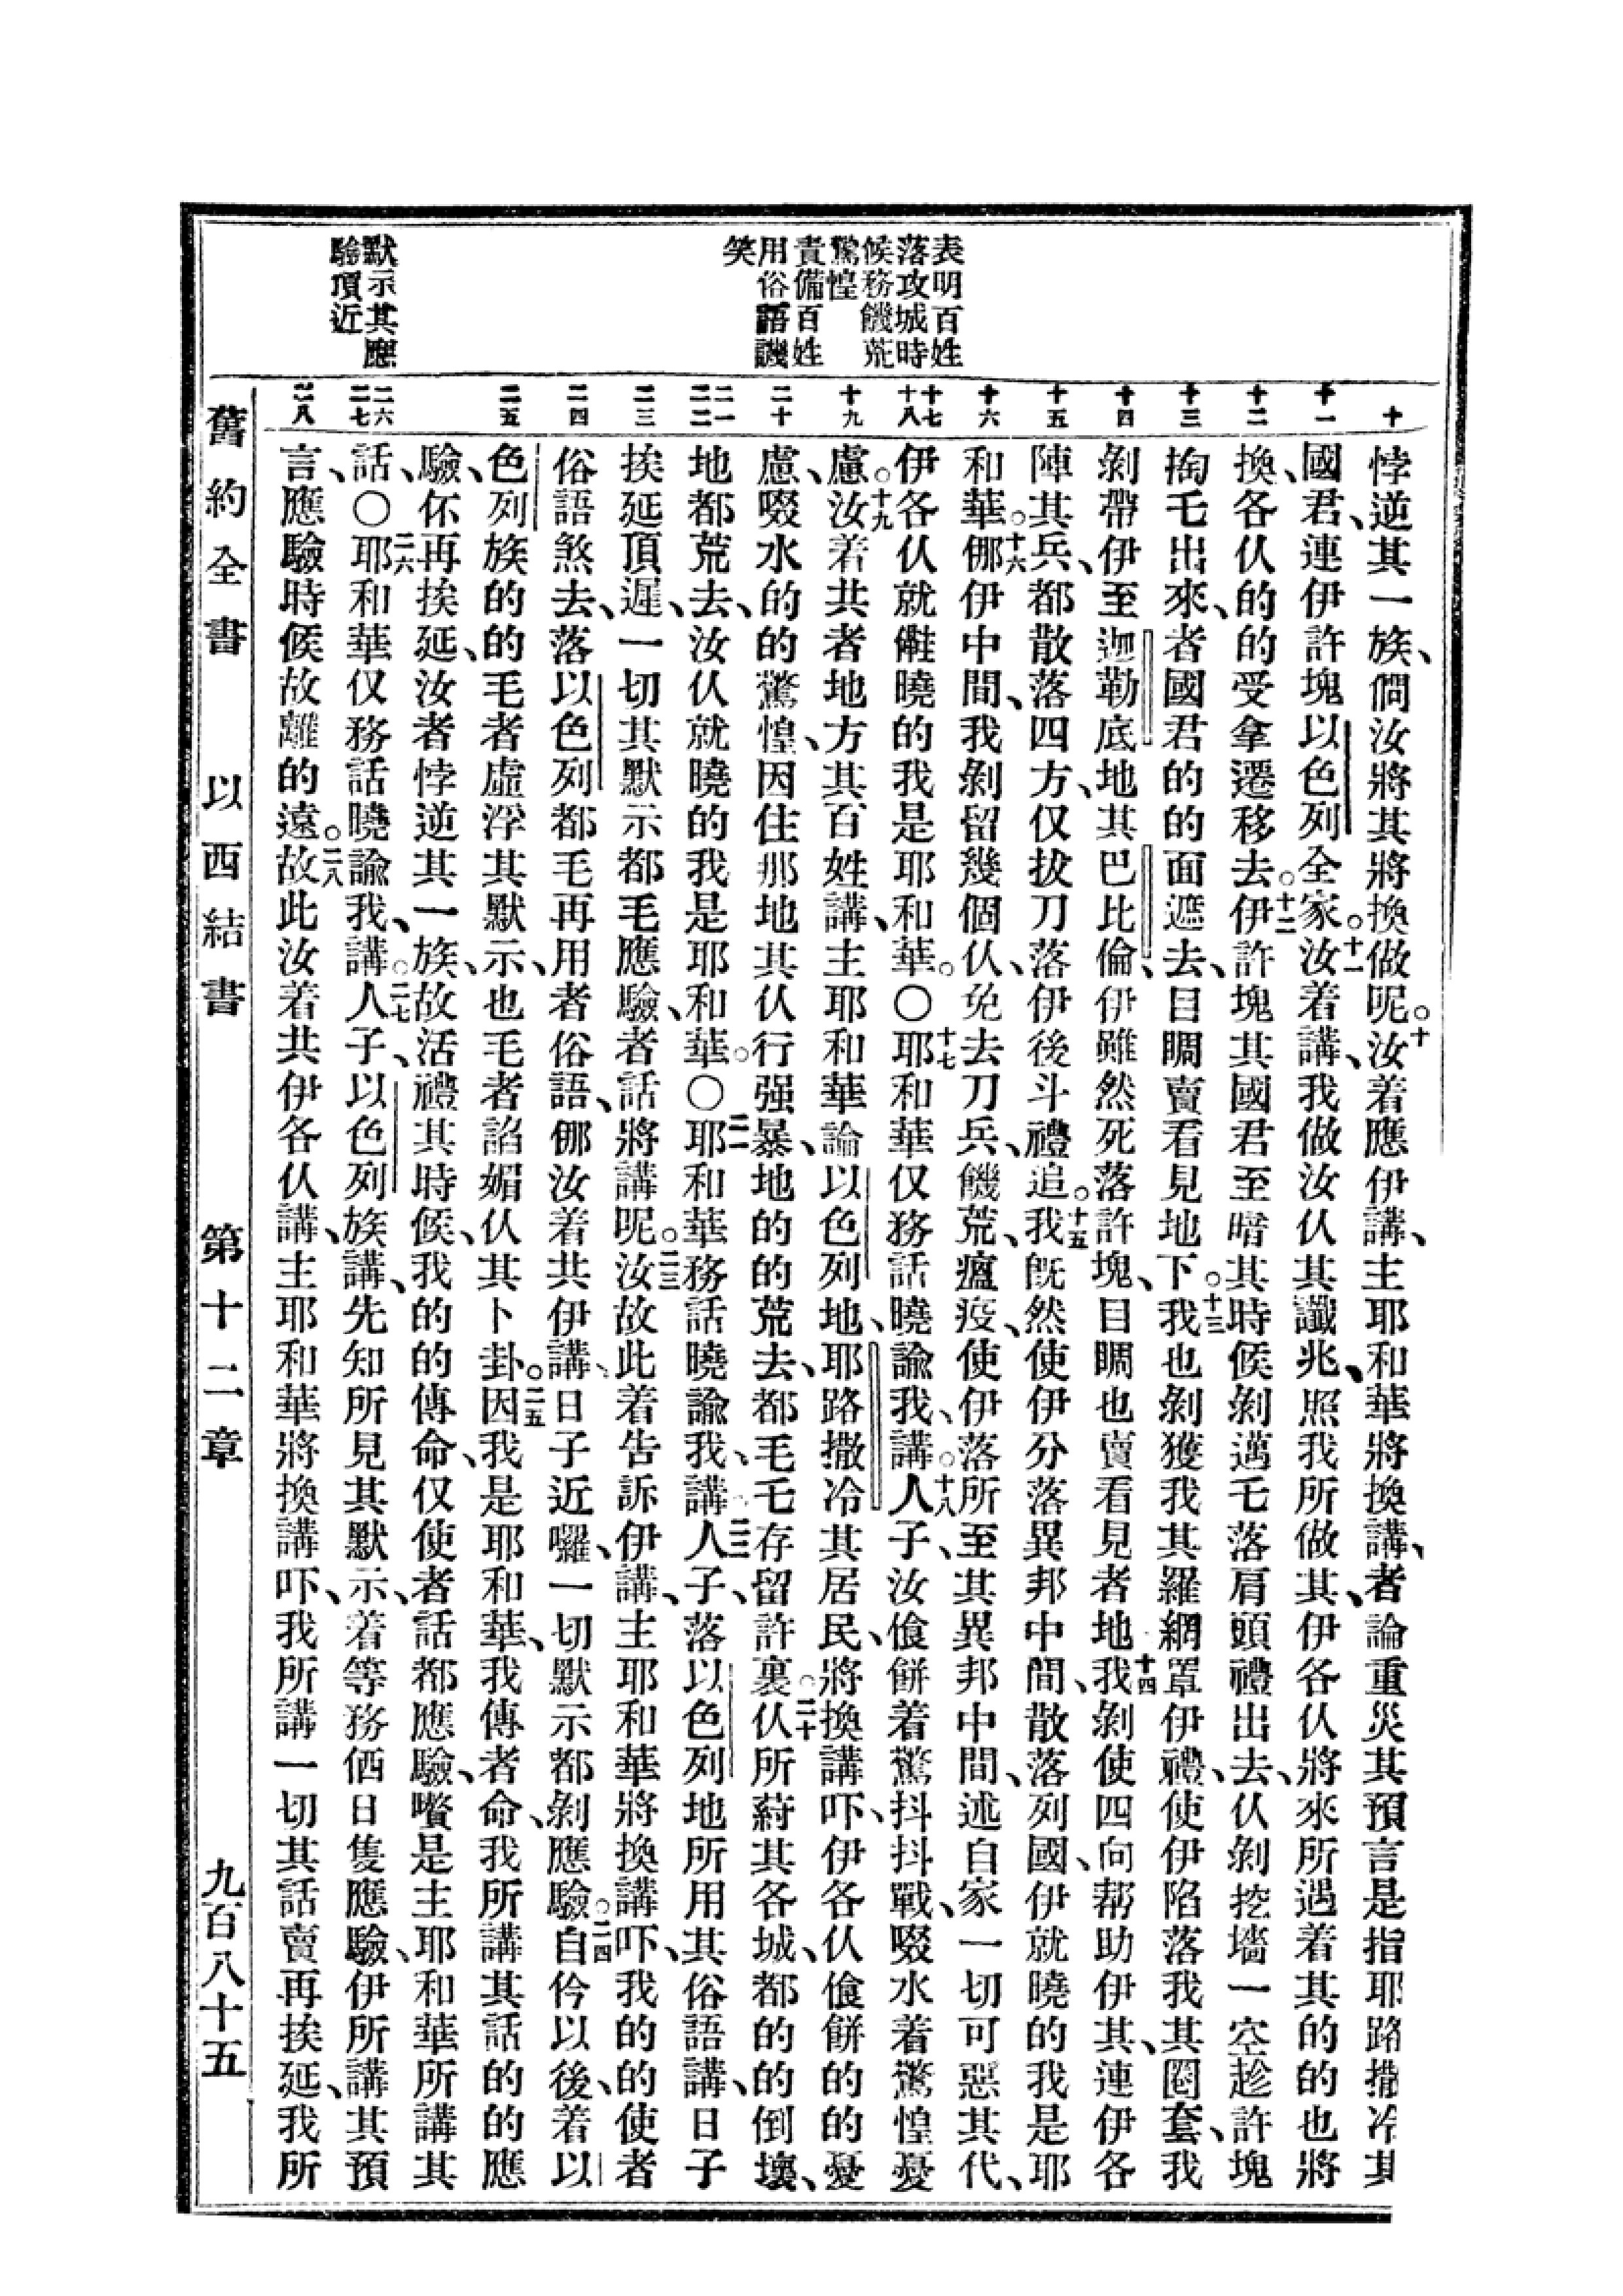 表明百姓
落攻城時
候務饑荒
驚惶
責備百姓
用俗語譏
笑
默示其應
驗頂近
十
十一
十二
十三
十四
十五
十六
十七
十八
十九
二十
二一
二二
二三
二四
二五
二六
二七
二八
悖逆其一族、倜汝將其將換做呢。十汝着應伊講、主耶和華將換講、者論重災其預言是指耶路撒冷其
國君、連伊許塊以色列全家。十一汝着講、我做汝仈其讖兆、照我所做其、伊各仈將來所遇着其的的也將
換、各仈的的受拿遷移去。十二伊許塊其國君至暗其時候剝邁乇落肩頭禮出去、仈剝挖墻一空趁許塊
掏乇出來、者國君的的面遮去、目睭賣看見地下。十三我也剝獲我其羅網罩伊禮、使伊陷落我其圈套、我
剝帶伊至迦勒底地其巴比倫、伊雖然死落許塊、目睭也賣看見者地。十四我剝使四向帮助伊其、連伊各
陣其兵、都散落四方、仅拔刀落伊後斗禮追。十五我既然使伊分落異邦中間、散落列國、伊就曉的我是耶
和華。十六㑚伊中間、我剝留幾個仈、免去刀兵、饑荒、瘟疫、使伊落所至其異邦中間、述自家一切可惡其代、
伊各仈就僆曉的我是耶和華。〇十七耶和華仅務話曉諭我、講。十八人子、汝飡餅着驚抖抖戰、啜水着驚惶憂
慮。十九汝着共者地方其百姓講、主耶和華論以色列地、耶路撒冷其居民、將換講吓、伊各仈飡餅的的憂
慮、啜水的的驚惶、因住那地其仈行强暴、地的的荒去、都毛乇存留許裏。二十仈所葑其各城、都的的倒壞、
地都荒去、汝仈就曉的我是耶和華。〇二一耶和華務話曉諭我、講。二二人子、落以色列地所用其俗語講、日子
挨延頂遲、一切其默示都毛應驗、者話將講呢。二三汝故此着告訴伊講、主耶和華將換講吓、我的的使者
俗語煞去、落以色列都毛再用者俗語、㑚汝着共伊講、日子近囉、一切默示都剝應驗。二四自伶以後、着以
色列族的的毛者虛浮其默示、也毛者諂媚仈其卜卦。二五因我是耶和華、我傳者命、我所講其話的的應
驗、伓再挨延、汝者悖逆其一族、故活禮其時候、我的的傳命、仅使者話都應驗、嚽是主耶和華所講其
話、〇二六耶和華仅務話曉諭我、講。二七人子、以色列族講、先知所見其默示、着等務価日隻應驗、伊所講其預
言、應驗時候故離的遠。二八故此汝着共伊各仈講、主耶和華將換講吓、我所講一切其話賣再挨延、我所
舊約全書　以西結書　第十二章　九百八十五